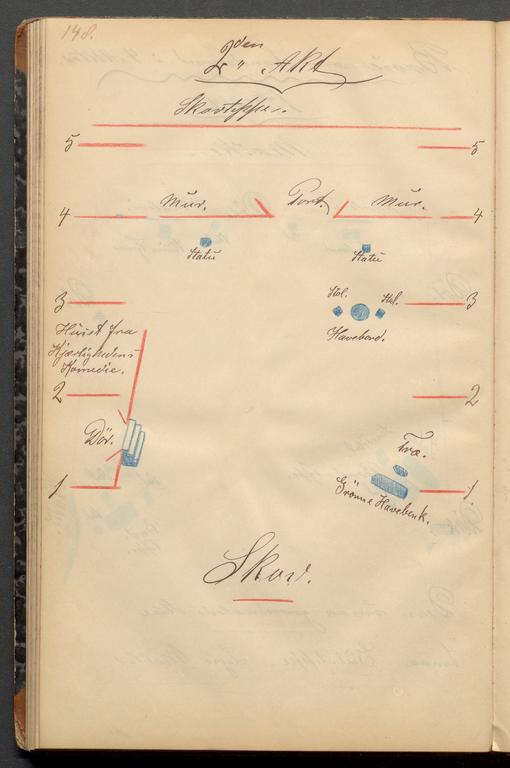 148.
2den Akt
Skovteppe.
5 5
Mur. Port. Mur.
4 4
Statu Statu
3 Stol. Stol. 3
Huset fra
Kjærlighedens
Komedie.
Havebord.
2 2
Dör. Træ.
1 Grönne Havebenk. 1
Skov.